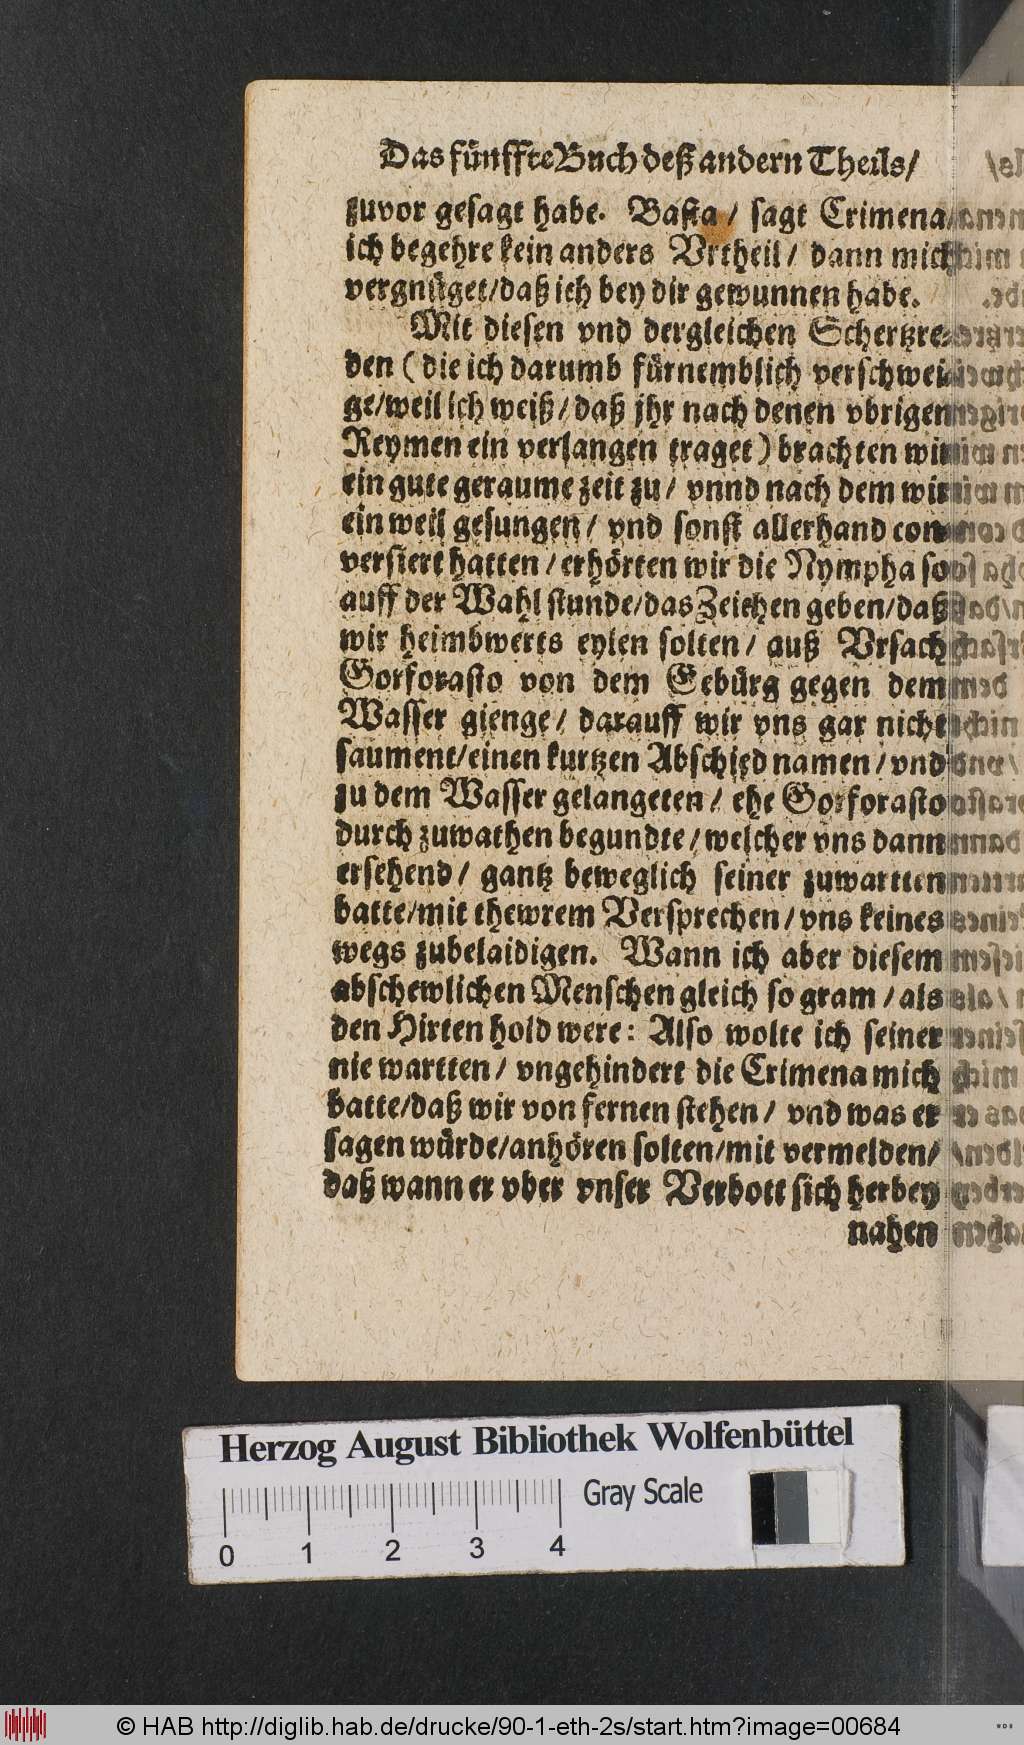 Das fünffte Buch deß andern Theils/
zuvor gesagt habe. Basta/ sagt Crimena/
ich begehre kein anders Vrtheil/ dann mich
vergnüget/daß ich bey dir gewunnen habe.
Mit diesen vnd dergleichen Schertzre-
den (die ich darumb fürnemblich verschwei-
ge/weil ich weiß/daß jhr nach denen vbrigen
Reymen ein verlangen traget) brachten wir
ein gute geraume zeit zu/ vnnd nach dem wir
ein weil gesungen/ vnd sonst allerhand con-
versiert hatten/erhörten wir die Nympha so
auff der Wahl stunde/das Zeichen geben/daß
wir heimbwerts eylen solten/ auß Vrsach
Gorforasto von dem Gebürg gegen dem
Wasser gienge/ darauff wir vns gar nicht
saument/einen kurtzen Abschied namen/vnd
zu dem Wasser gelangeten/ ehe Gorforasto
durch zuwathen begundte/welcher vns dann
ersehend/ gantz beweglich seiner zuwartten
batte/mit thewrem Versprechen/vns keines
wegs zubelaidigen. Wann ich aber diesem
abschewlichen Menschen gleich so gram/als
den Hirten hold were: Also wolte ich seiner
nie wartten/ vngehindert die Crimena mich
batte/daß wir von fernen stehen/ vnd was er
sagen würde/anhören solten/mit vermelden/
daß wann er vber vnser Verbott sich herbey
nahen
Herzog August Bibliothek Wolfenbüttel
Gray Scale
0 1 2 3 4
© HAB http://diglib.hab.de/drucke/90-1-eth-2s/start.htm?image=00684